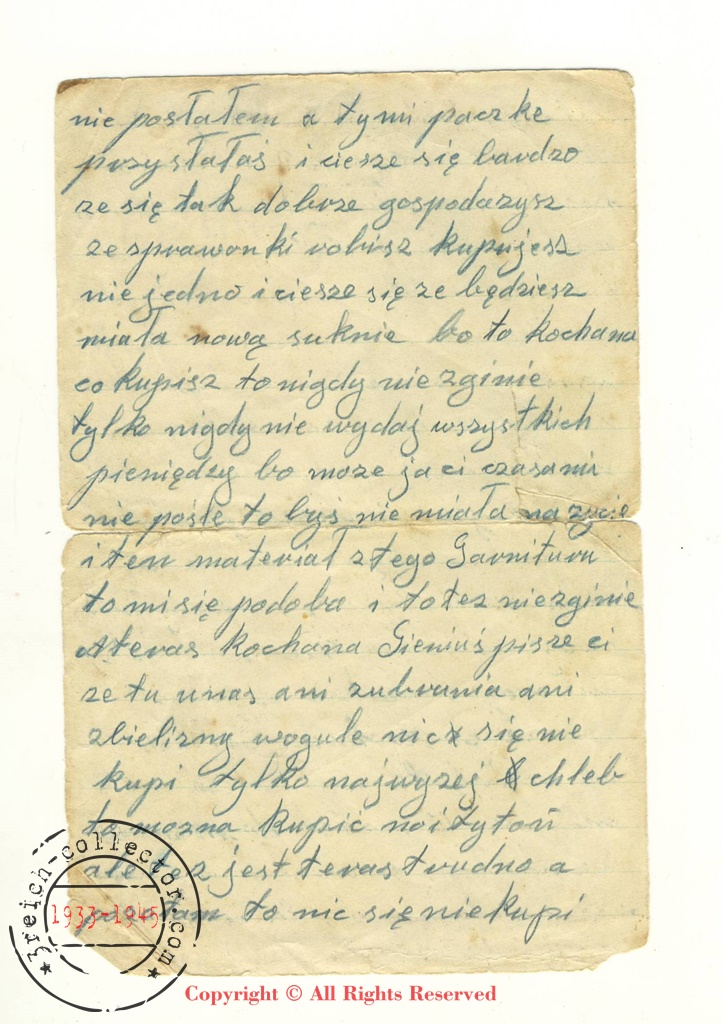 nie posłałem a tymi paczke
przysłałaś i ciesze się bardzo
ze się tak dobrze gospodazysz
ze sprawonki robisz kupujesz
nie jedno i ciesze się ze będziesz
miała nową suknie bo to kochana
co kupisz to nigdy nie zginie
tylko nigdy nie wydaj wszystkich
pieniędzy bo moze ja ci czasami
nie pośle to byś nie miała na zycie
i ten materiał z tego Garnituru
to mi się podoba i to tez niezginie
A teras kochana Gieniuś pisze ci
ze tu unas ani zubrania ani
zbielizny wogule nic się nie
kupi tylko najwyzej chleb
tz mozna kupić no i tytoń
ale tez jest teras trudno a
to nic się niekupi
3reich-collector.com
1933-1945
Copyright © All Rights Reserved